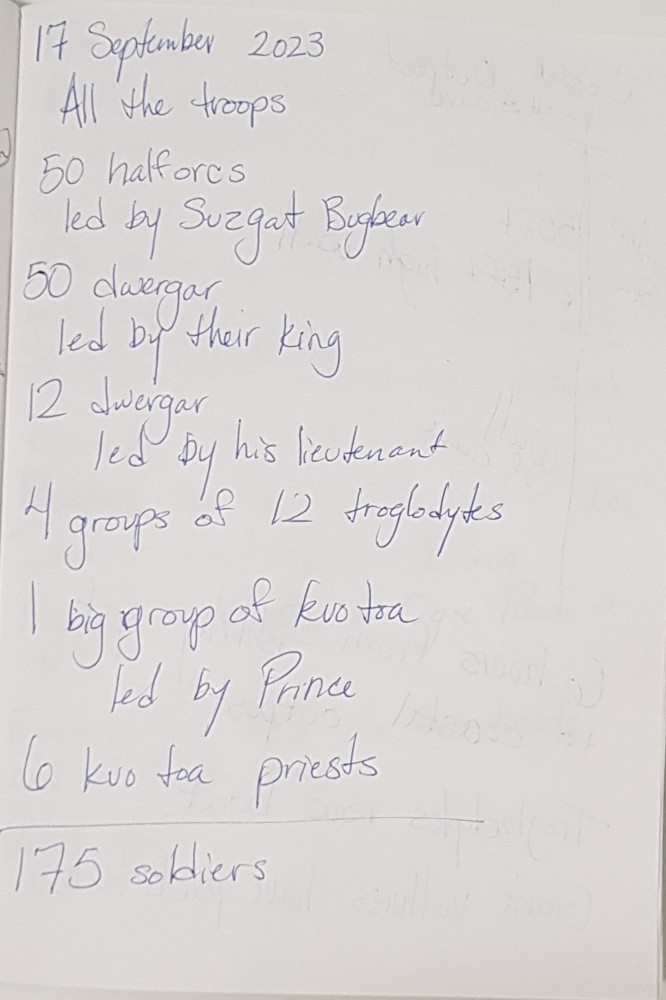 17 September 2023
All the troops
50 halforcs
led by Suzgat Bugbear
50 dwergar
led by their king
12 dwergar
led by his lieutenant
4 groups of 12 troglodytes
1 big group of kuo toa
led by Prince
6 kuo toa priests
175 soldiers